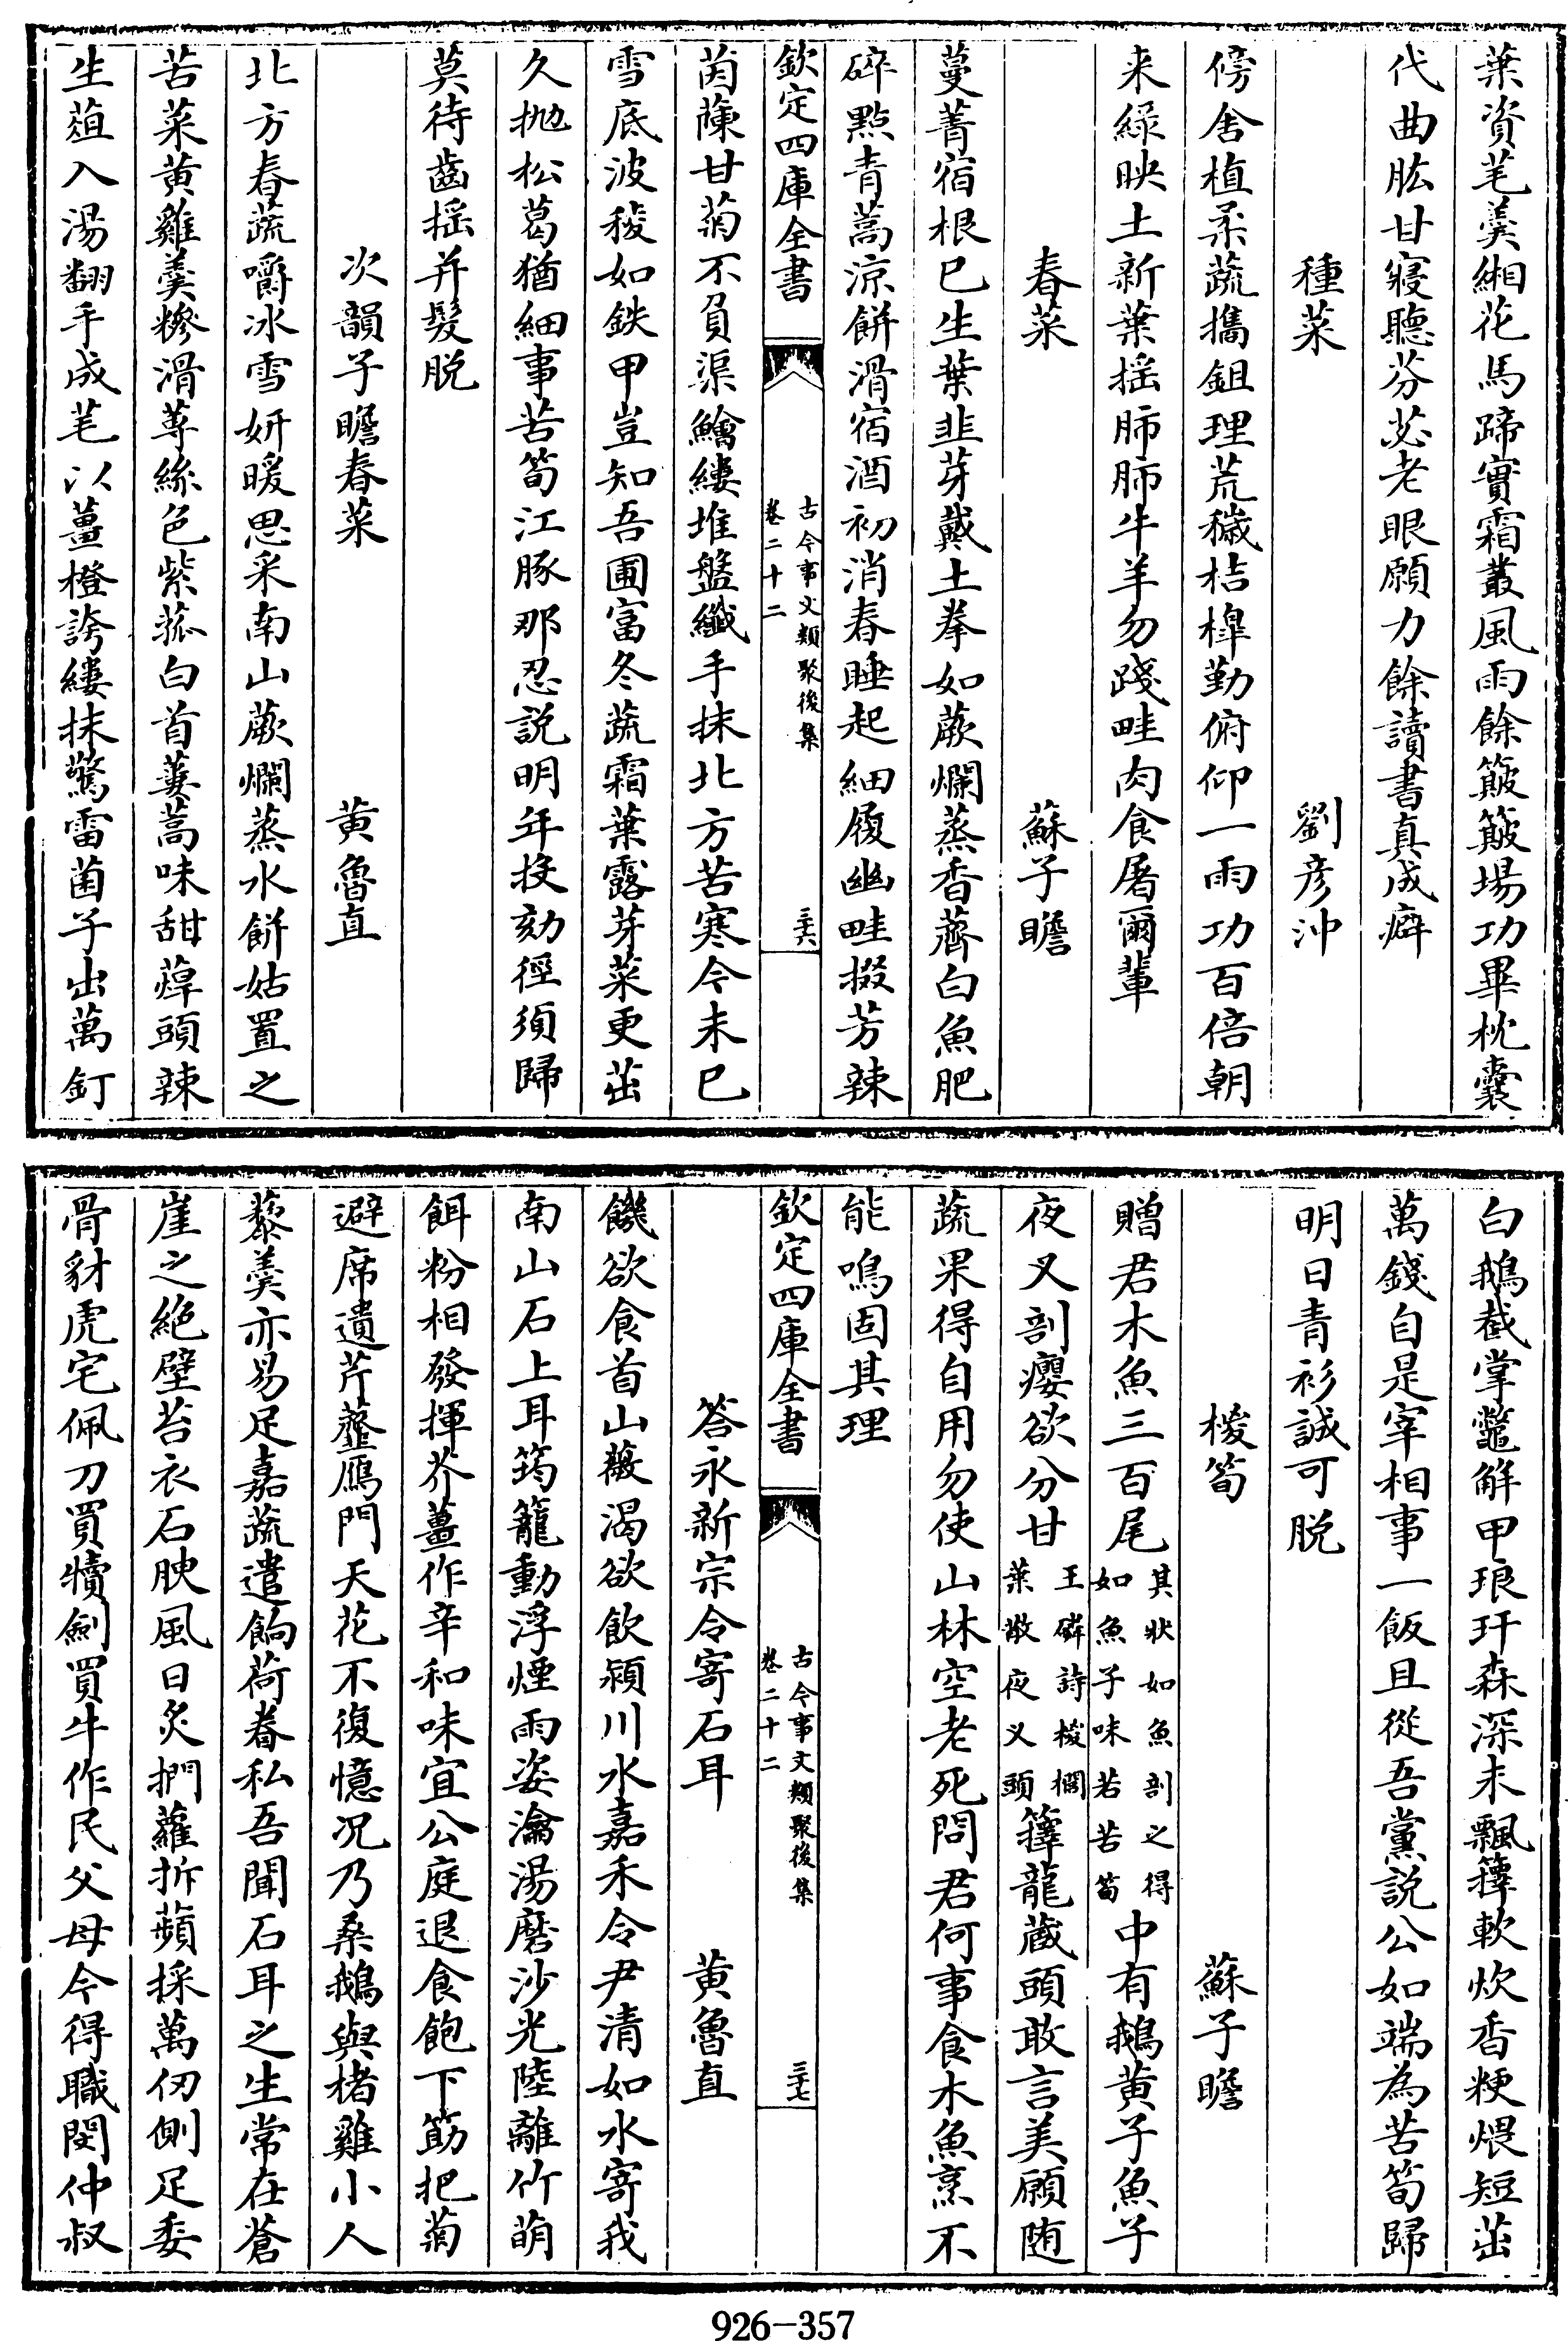 葉資芼羮緗花馬蹄實霜叢風雨餘簸簸場功畢枕囊
代曲肱甘寢聽芬苾老眼願力餘讀書真成癖
種菜　劉彦沖
傍舍植柔蔬攜鉏理荒穢桔槹勤俯仰一雨功百倍朝
来緑映土新葉揺肺肺牛羊勿踐畦肉食屠爾輩
春菜　蘇子瞻
蔓菁宿根已生葉韭芽戴土拳如蕨爛蒸香薺白魚肥
碎點青蒿涼餅滑宿酒初消春睡起細履幽畦掇芳辣
欽定四庫全書　古今事文類聚後集　卷二十二　三六
茵蔯甘菊不負渠鱠縷堆盤纎手抹北方苦寒今未已
雪底波稜如鉄甲豈知吾圃富冬蔬霜葉露芽菜更茁
久抛松葛猶細事苦筍江豚那忍説明年投劾徑須歸
莫待齒揺并髮脱
次韻子瞻春菜　黄魯直
北方春蔬嚼冰雪妍暖思采南山蕨爛蒸水餅姑置之
苦菜黄雞羮糝滑蓴絲色紫菰白首蔞蒿味甜蔊頭辣
生葅入湯翻手成芼以薑橙誇縷抹驚雷菌子出萬釘
白鵝截掌鼈解甲琅玕森深未飄籜軟炊香粳煨短茁
萬錢自是宰相事一飯且從吾黨説公如端為苦筍歸
明日青衫誠可脱
椶筍　蘇子瞻
贈君木魚三百尾其狀如魚剖之得如魚子味若苦筍中有鵝黄子魚子
夜叉剖癭欲分甘王磷詩椶櫚葉散夜叉頭籜龍藏頭敢言美願随
蔬果得自用勿使山林空老死問君何事食木魚烹不
能鳴固其理
欽定四庫全書　古今事文類聚後集　卷二十二　三七
答永新宗令寄石耳　黄魯直
饑欲食首山薇渴欲飲潁川水嘉禾令尹清如水寄我
南山石上耳筠籠動浮煙雨姿瀹湯磨沙光陸離竹萌
餌粉相發揮芥薑作辛和味宜公庭退食飽下筯把菊
避席遺芹虀鴈門天花不復憶况乃桑鵝與楮雞小人
藜羮亦易足嘉蔬遣餉荷眷私吾聞石耳之生常在蒼
崖之絶壁苔衣石腴風日炙捫蘿拆蘋採萬仞側足委
骨豺虎宅佩刀買犢劍買牛作民父母今得職閔仲叔
926-357